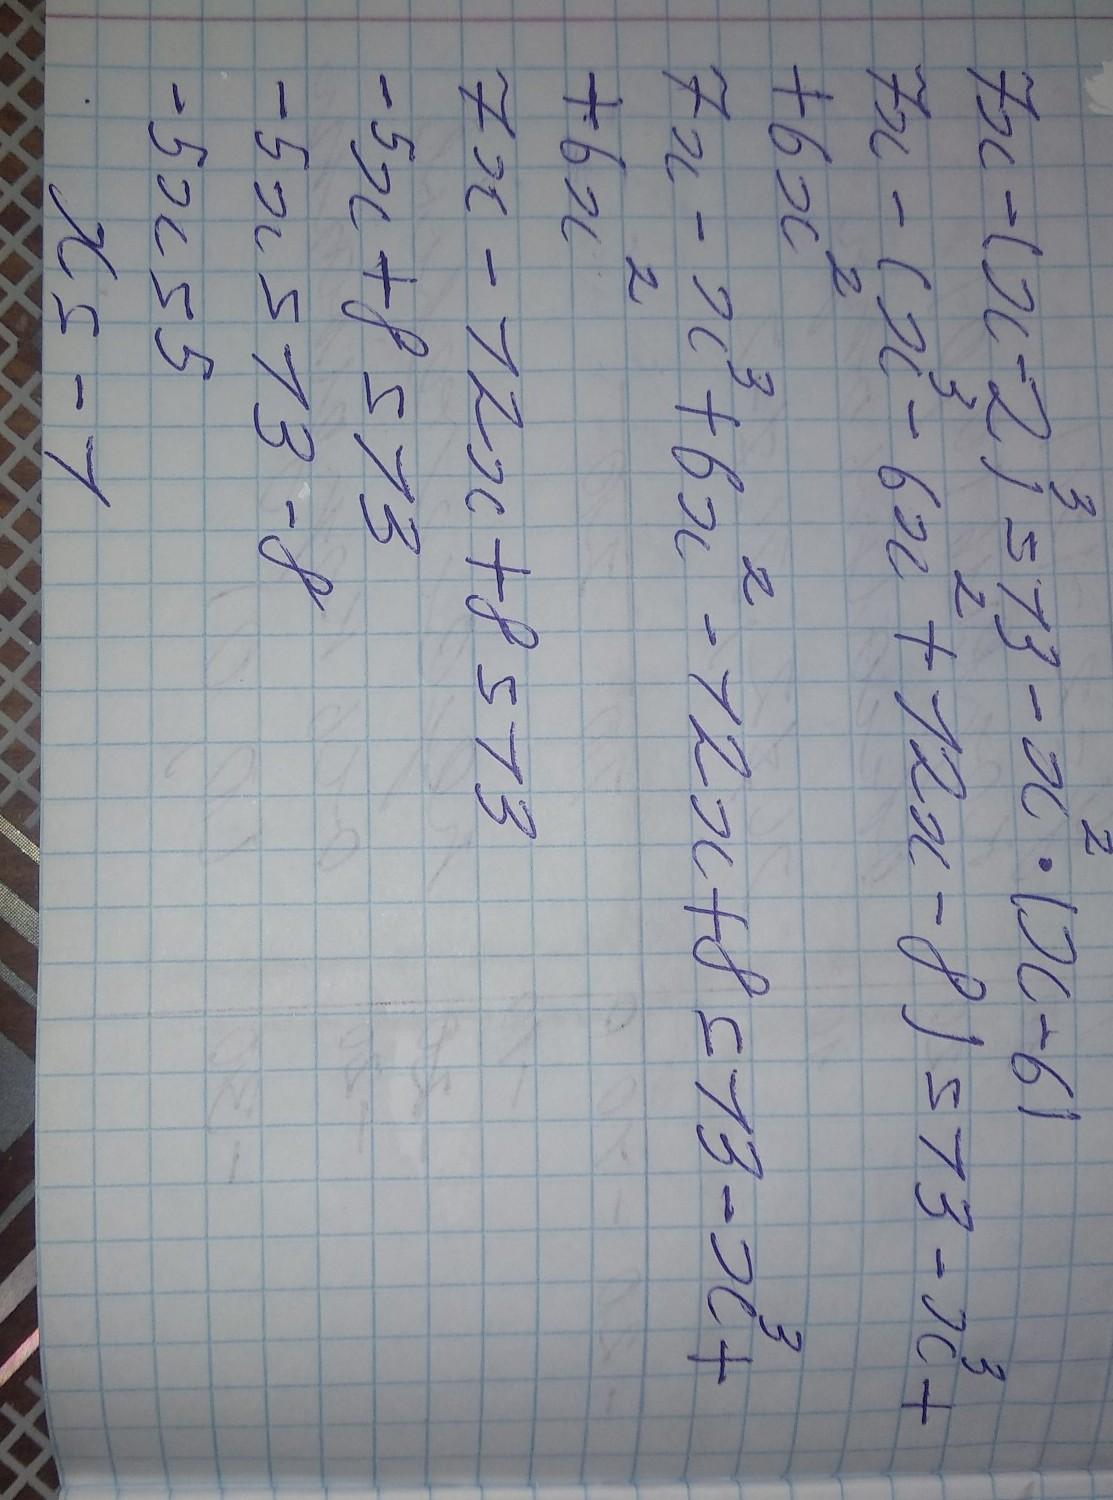 7x - (x - 2)³ = 13 - x² · (x - 6)
7x - (x³ - 6x² + 12x - 8) = 13 - x³ +
+ 6x²
7x - x³ + 6x² - 12x + 8 = 13 - x³ +
+ 6x²
7x - 12x + 8 = 13
-5x + 8 = 13
-5x = 13 - 8
-5x = 5
x = -1